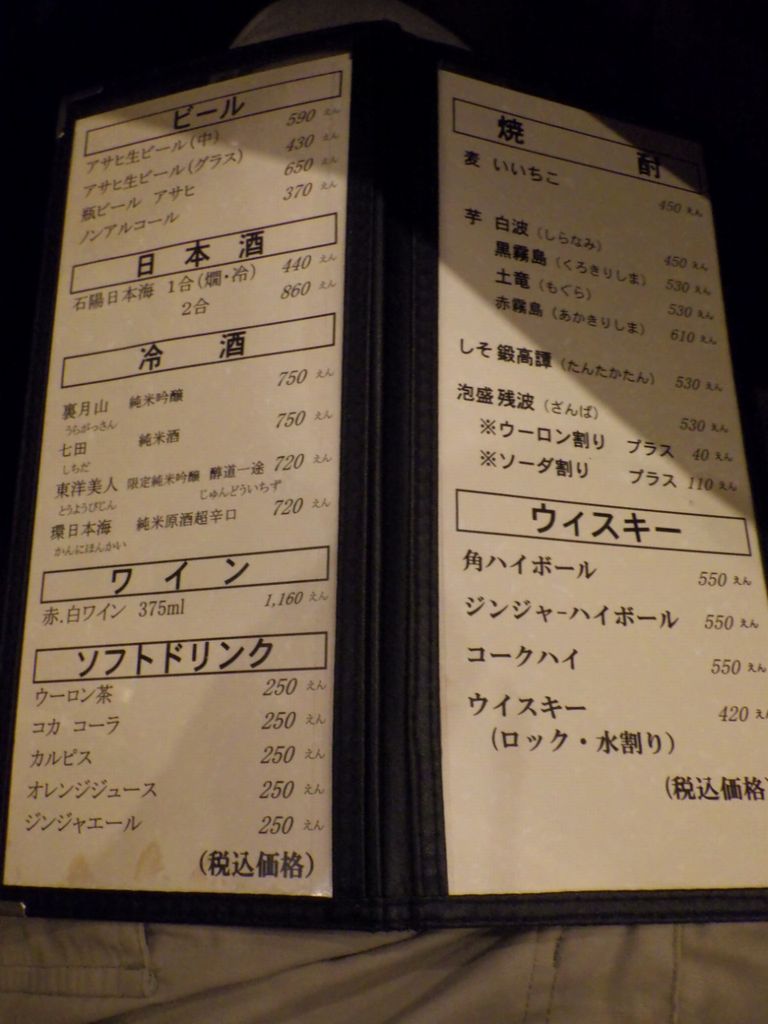 ビール
アサヒ生ビール(中) 590 えん
アサヒ生ビール(グラス) 430 えん
瓶ビール アサヒ 650 えん
ノンアルコール 370 えん
日本酒
石陽日本海 1合(燗・冷) 440 えん
2合 860 えん
冷酒
裏月山 純米吟醸 750 えん
うらがっさん
七田 純米酒 750 えん
しちだ
東洋美人 限定純米吟醸 醇道一途 720 えん
とうようびじん じゅんどういちず
環日本海 純米原酒超辛口 720 えん
かんにほんかい
ワイン
赤.白ワイン 375ml 1,160 えん
ソフトドリンク
ウーロン茶 250 えん
コカ コーラ 250 えん
カルピス 250 えん
オレンジジュース 250 えん
ジンジャエール 250 えん
(税込価格)
焼酎
麦 いいちこ 450 えん
芋 白波(しらなみ) 450 えん
黒霧島(くろきりしま) 530 えん
土竜(もぐら) 530 えん
赤霧島(あかきりしま) 610 えん
しそ 鍛高譚(たんたかたん) 530 えん
泡盛 残波(ざんぱ) 530 えん
※ウーロン割り プラス 40 えん
※ソーダ割り プラス 110 えん
ウィスキー
角ハイボール 550 えん
ジンジャ-ハイボール 550 えん
コークハイ 550 えん
ウイスキー 420 えん
(ロック・水割り)
(税込価格